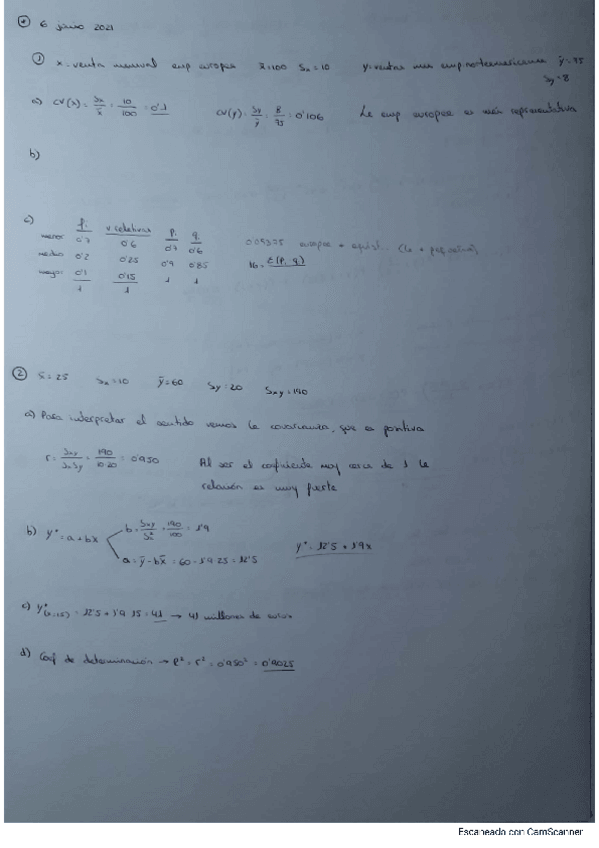 * 6 junio 2021
① x: venta mensual emp europea x̄=100 Sx=10 y: ventas men emp. norteamericana ȳ=75
Sy=8
a) CV(x) = Sx/x̄ = 10/100 = 0'1 CV(y) = Sy/ȳ = 8/75 = 0'106 La emp europea es más representativa
b)
c) fi v relativas pi qi
menor 0'7 0'6 0'7 0'6 0.05325 europea + equist. (la + pequeña)
medio 0'2 0'25 0'9 0'85 IG = Σ(pi - qi)
mayor 0'1 0'15 1 1
1 1
② x̄=25 Sx=10 ȳ=60 Sy=20 Sxy=190
a) Para interpretar el sentido vemos la covarianza, que es positiva
r = Sxy/SxSy = 190/10·20 = 0'950 Al ser el coeficiente muy cerca de 1 la
relación es muy fuerte
b) y* = a + bx b = Sxy/Sx² = 190/100 = 1'9
a = ȳ - bx̄ = 60 - 1'9·25 = 12'5 y* = 12'5 + 1'9x
c) y*(x=15) = 12'5 + 1'9·15 = 41 → 41 millones de euros
d) Coef de determinación → R² = r² = 0'950² = 0'9025
Escaneado con CamScanner